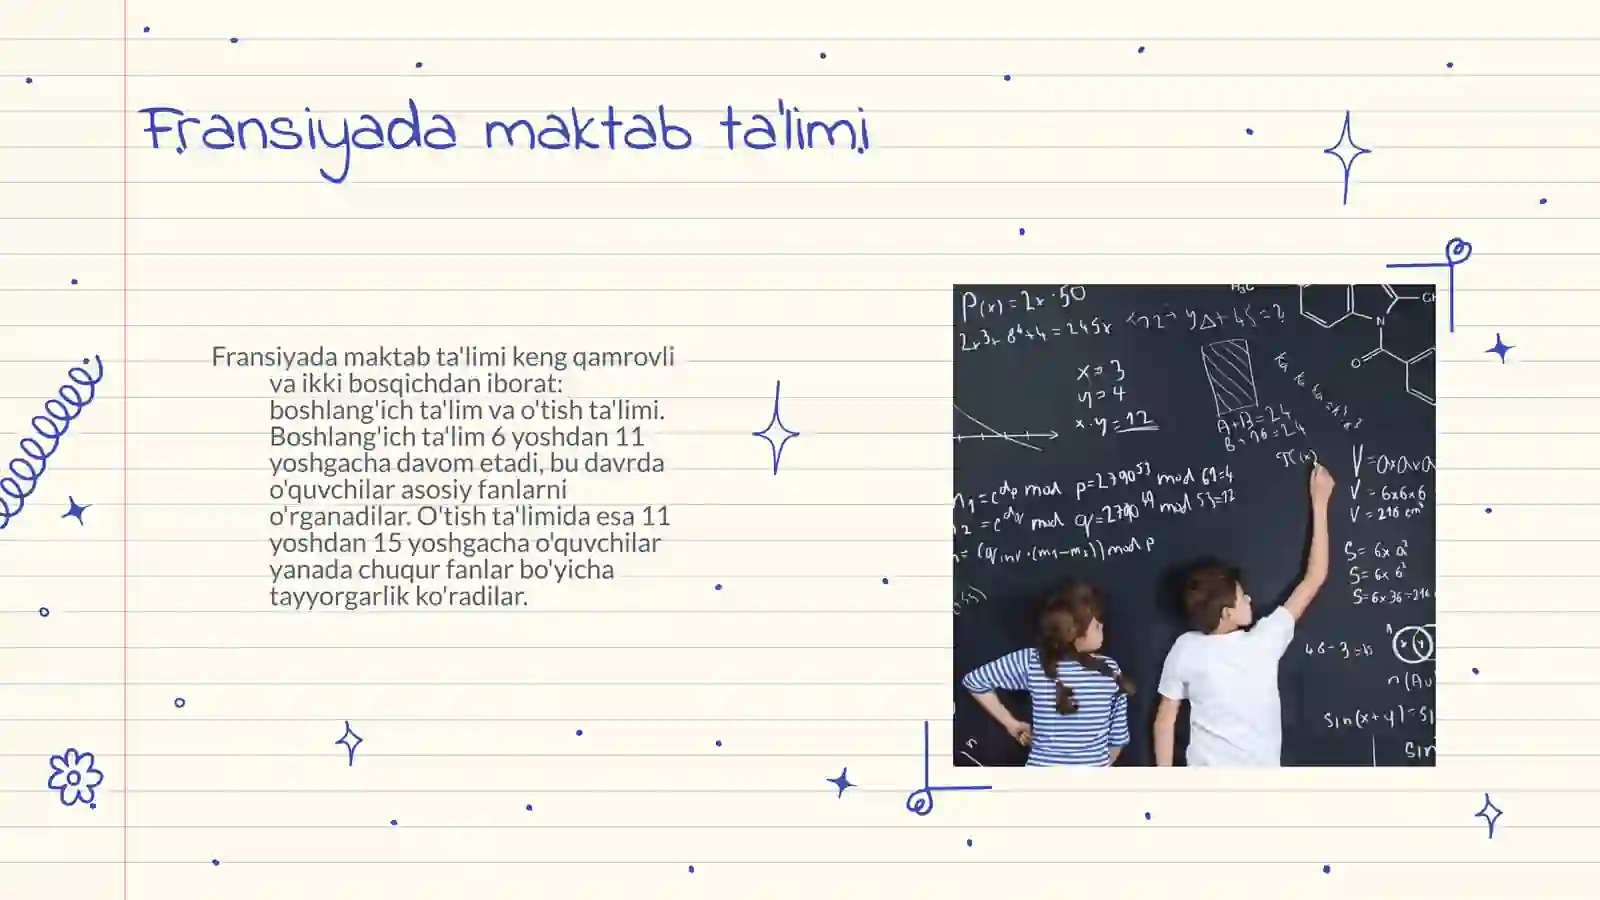 Fransiyada maktab ta'limi
Fransiyada maktab ta'limi keng qamrovli
va ikki bosqichdan iborat:
boshlang'ich ta'lim va o'tish ta'limi.
Boshlang'ich ta'lim 6 yoshdan 11
yoshgacha davom etadi, bu davrda
o'quvchilar asosiy fanlarni
o'rganadilar. O'tish ta'limida esa 11
yoshdan 15 yoshgacha o'quvchilar
yanada chuqur fanlar bo'yicha
tayyorgarlik ko'radilar.
P(x) = 2x · 50
x = 3
y = 4
x · y = 12
A + B = 24
B + 16 = 24
π(x)
V = 6x6x6
V = 216 cm³
S = 6x a²
S = 6x 6²
S = 6x 36 = 216
n (Au
sin(x+y) = si
sin